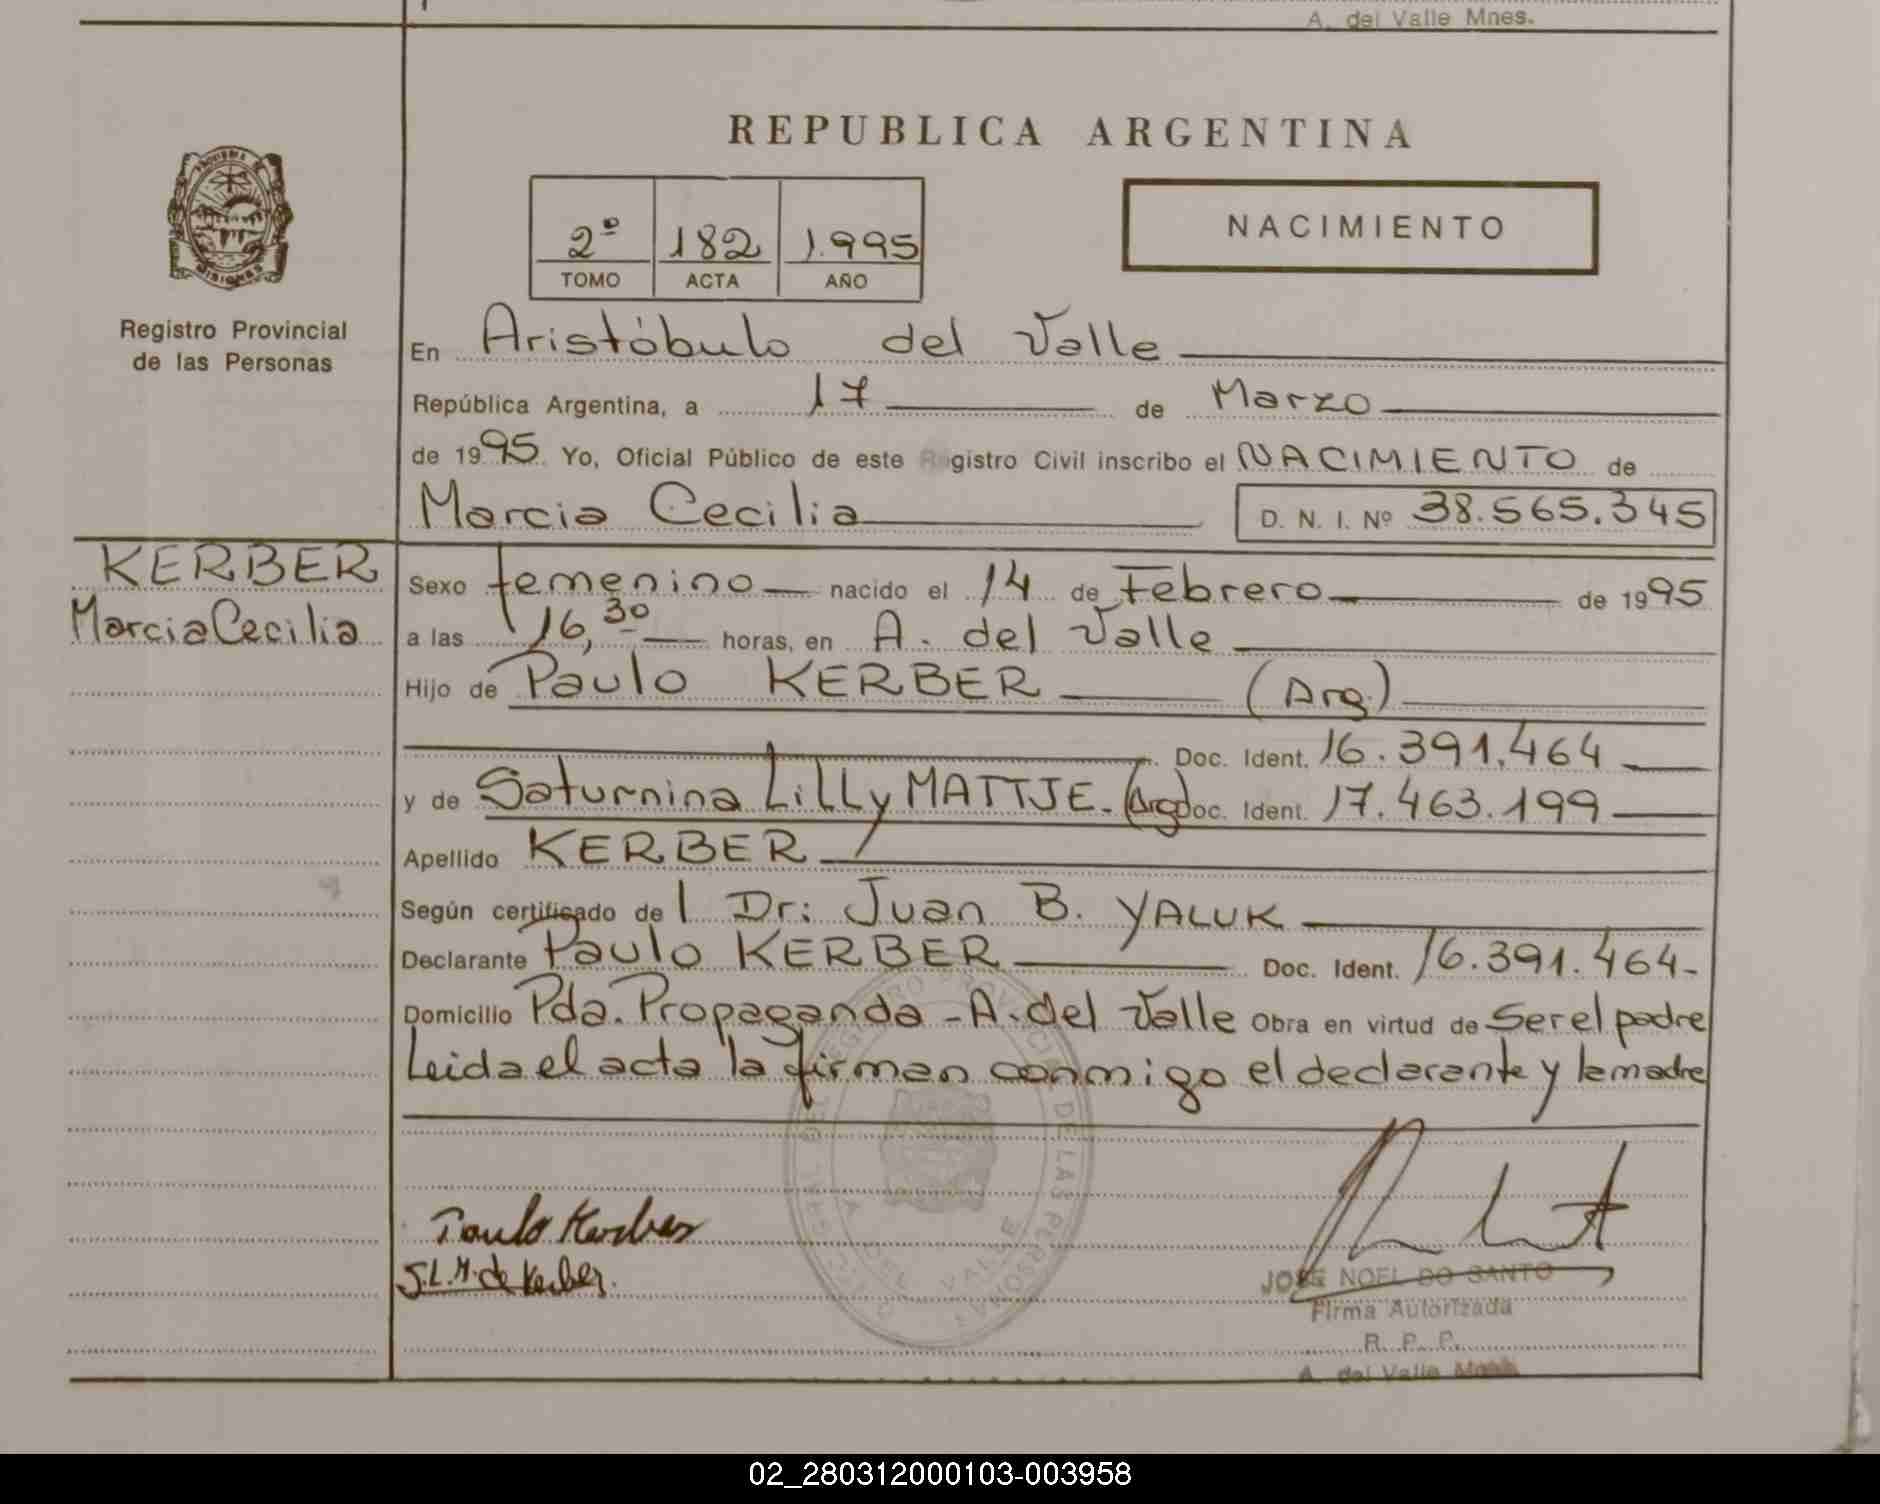 A. del Valle Mnes.
REPUBLICA ARGENTINA
PROVINCIA DE MISIONES
2º 182 1.995
TOMO ACTA AÑO
NACIMIENTO
Registro Provincial
de las Personas
En Aristóbulo del Valle
República Argentina, a 17 de Marzo
de 1995 Yo, Oficial Público de este Registro Civil inscribo el NACIMIENTO de
Marcia Cecilia D. N. I. Nº 38.565.345
KERBER
Marcia Cecilia
Sexo femenino nacido el 14 de Febrero de 1995
a las 16,30 horas, en A. del Valle
Hijo de Paulo KERBER (Arg.)
Doc. Ident. 16.391.464
y de Saturnina Lilly MATTJE. (Arg) Doc. Ident. 17.463.199
Apellido KERBER
Según certificado del Dr: Juan B. YALUK
Declarante Paulo KERBER Doc. Ident. 16.391.464-
Domicilio Pda. Propaganda - A. del Valle Obra en virtud de Ser el padre
Leida el acta la firman conmigo el declarante y la madre
REGISTRO PROVINCIAL DE LAS PERSONAS
A. DEL VALLE
Paulo Kerber
S.L.M. de Kerber.
JOSE NOEL DO SANTO
Firma Autorizada
R. P. P.
A. del Valle Mnes.
02_280312000103-003958